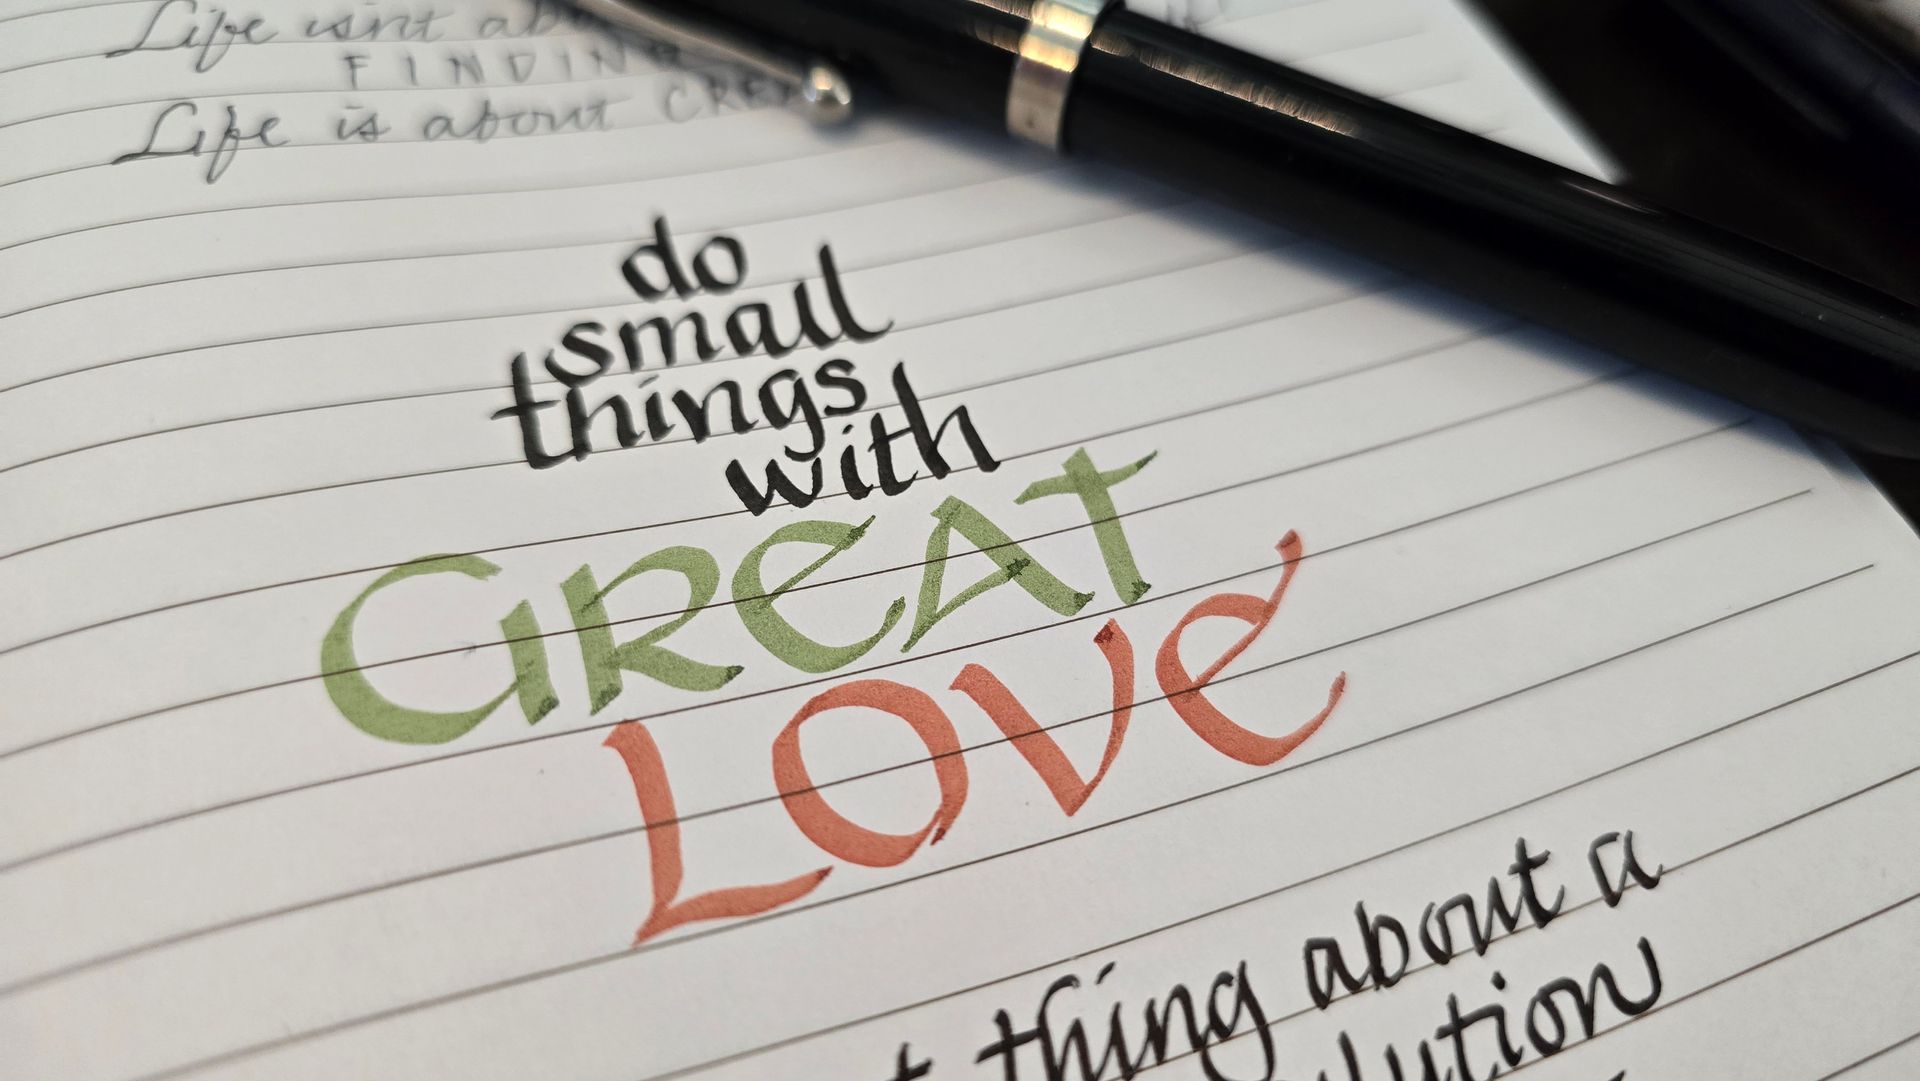 Life isn't
FINDING
Life is about
do
small
things
with
GREAT
LOVE
thing about a